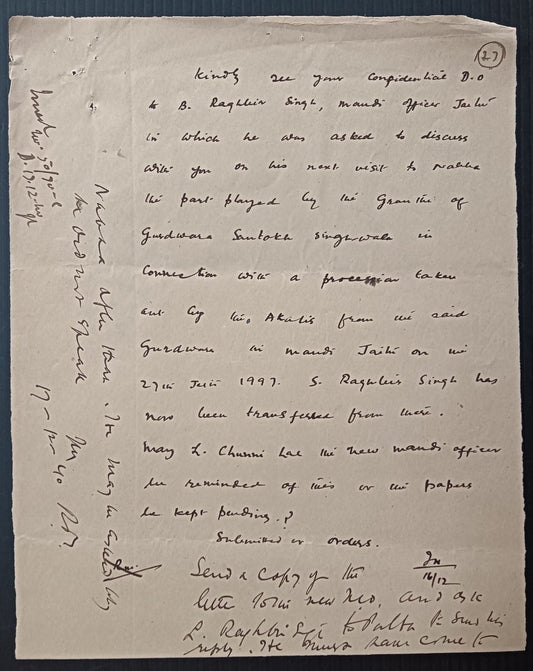 27
Kindly see your Confidential D.O
to B. Raghbir Singh, Mandi Officer Jaitu
in which he was asked to discuss
with you on his next visit to Nabha
the part played by the Granthi of
Gurdwara Santokh Singhwala in
Connection with a procession taken
out by the Akalis from the said
Gurdwara in Mandi Jaitu on the
27th Jeth 1997. S. Raghbir Singh has
now been transferred from there.
May L. Chunni Lal the new Mandi officer
be reminded of this or the papers
be kept pending.?
Submitted for orders.
16/12
Send a copy of the
letter to the new M.O. and ask
L. Raghbir Singh to send his
reply. He must have come to
Nabha after that. He may be asked why
he did not speak
17-12-40
Issued
No.
D. 17.12.40